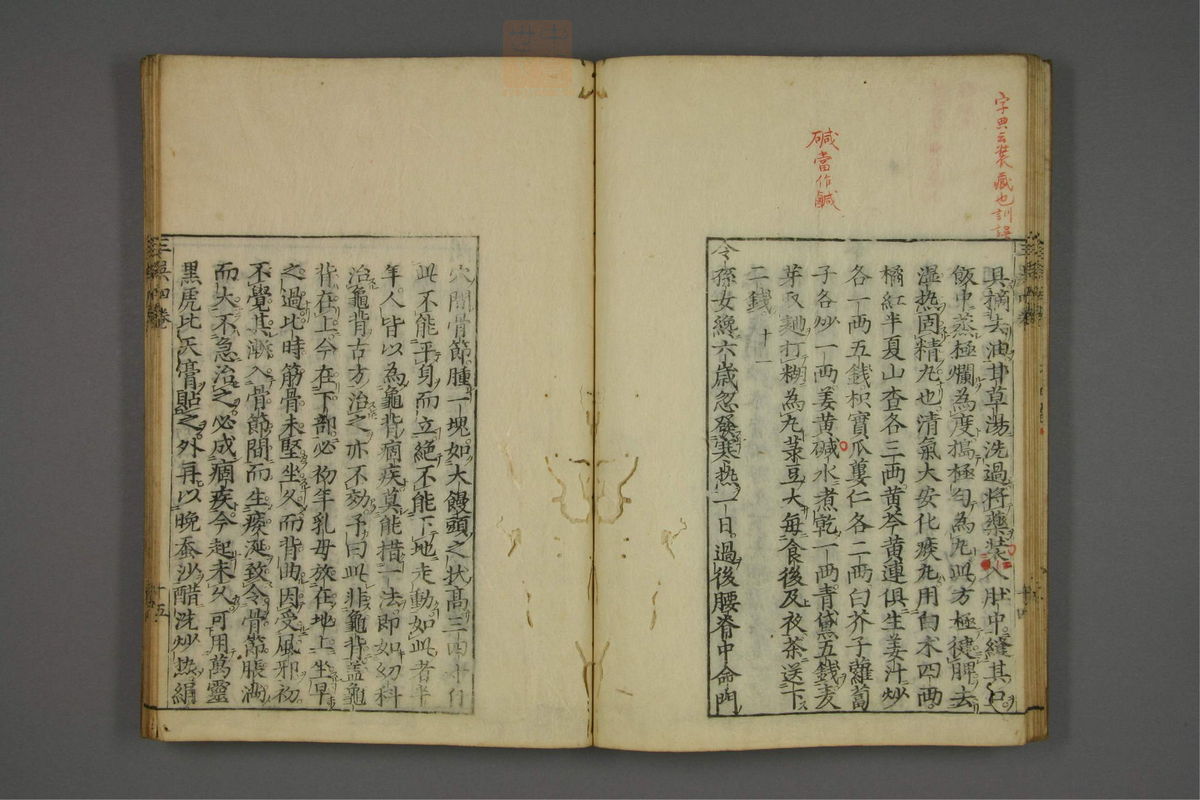 字典云裝藏也訓誤
碱當作鹹
具擣去油甘草湯洗過將藥裝入肚中縫其口
飯中蒸極爛為度搗極勻為丸此方極健脾去
濕热固精丸也清氣大安化痰丸用白术四兩
橘紅半夏山查各三兩黃芩黃連俱生姜汁炒
各一兩五錢枳實瓜蔞仁各二兩白芥子蘿蔔
子各炒一兩姜黃碱水煮乾一兩青黛五錢麦
芽取麯打糊為丸菉豆大每食後及夜茶送下
二錢 十一
令孫女纔六歲忽發寒热一日過後腰脊中命門
穴間骨節腫一塊如大饅頭之狀高三四寸自
此不能平身而立絕不能下地走動如此者半
年人皆以為龜背痼疾莫能措一法即如幼科
治龜背古方治之亦不効予曰此非龜背蓋龜
背在上今在下部必初年乳母放在地上坐早
之過比時筋骨未堅坐久而背曲因受風邪初
不覺其漸入骨節間而生痰涎致令骨節脹滿
而大不急治之必成痼疾今起未久可用萬靈
黑虎比天膏貼之外再以晚蚕沙醋洗炒热絹
三吳四卷
十五